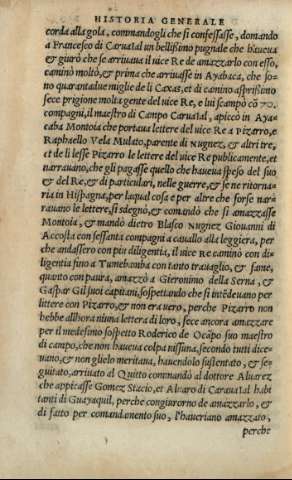 HISTORIA GENERALE
corda alla gola, commandogli che si confessasse, domando
a Francesco di Caruaial un bellissimo pugnale che haueua
& giurò che se arriuaua il uice Re de amazzarlo con esso,
caminò molto, & prima che arriuasse in Ayabaca, che so-
no quarantadue miglie de li Caxas, et di camino asprissimo
fece prigione molta gente del uice Re, e lui scampò cō 70.
compagni, il maestro di Campo Caruaial, apiccò in Aya-
caba Montoia che portaua lettere del uice Re a Pizarro, e
Raphaello Vela Mulato, parente di Nugnez, & altri tre,
et de li lesse Pizarro le lettere del uice Re publicamente, et
narrauano, che gli pagasse quello che haueua speso del suo
& del Re, & di particulari, nelle guerre, & se ne ritorna-
ria in Hispagna, per laqual cosa e per altre che forse nar-
rauano le lettere, si sdegnò, & comandò che si amazzasse
Montoia, & mandò dietro Blasco Nugnez Giouanni di
Accosta con sessanta compagni a cauallo alla leggiera, per
che andassero con piu diligentia, il uice Re caminò con di-
ligentia sino a Tumebamba con tanto trauaglio, & fame,
quanto con paura, amazzò a Gieronimo della Serna, &
Gaspar Gil suoi capitani, sospettando che si intēdeuano per
littere con Pizarro, & non era uero, perche Pizarro non
hebbe allhora niuna lettera di loro, fece ancora amazzare
per il medesimo sospetto Roderico de Ocāpo suo maestro
di campo, che non haueua colpa nissuna, secondo tutti dice-
uano, & non glielo meritaua, hauendolo sustentato, & se-
guitato, arriuato al Quitto commandò al dottore Aluarez
che appicasse Gomez Stacio, et Aluaro di Caruaial habi
tanti di Guayaquil, perche congiurorno de amazzarlo, &
di fatto per comandamento suo, l'haueriano amazzato,
perche